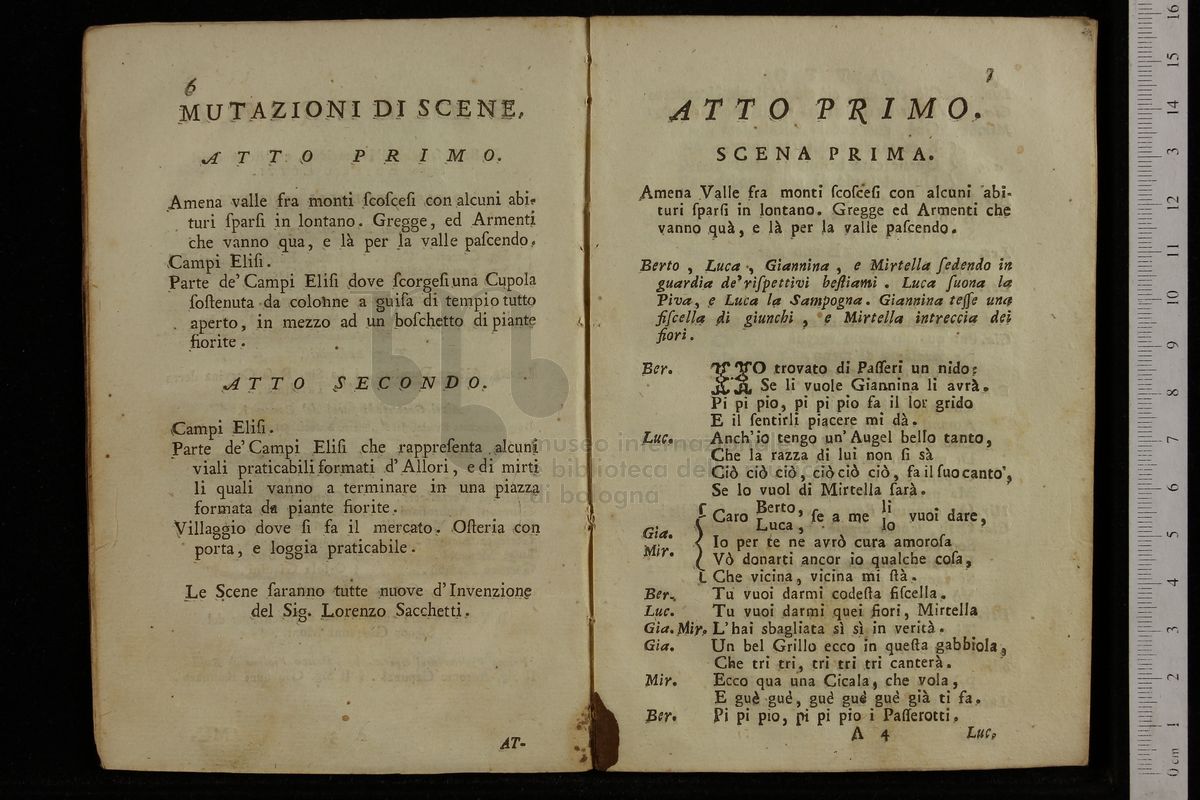 6
MUTAZIONI DI SCENE,
ATTO PRIMO.
Amena valle fra monti ſcoſceſi con alcuni abi-
turi ſparſi in lontano. Gregge, ed Armenti
che vanno qua, e là per la valle paſcendo.
Campi Eliſi.
Parte de' Campi Eliſi dove ſcorgeſi una Cupola
ſoſtenuta da colonne a guiſa di tempio tutto
aperto, in mezzo ad un boſchetto di piante
fiorite.
ATTO SECONDO.
Campi Eliſi.
Parte de' Campi Eliſi che rappreſenta alcuni
viali praticabili formati d'Allori, e di mirti
li quali vanno a terminare in una piazza
formata da piante fiorite.
Villaggio dove ſi fa il mercato. Oſteria con
porta, e loggia praticabile.
Le Scene ſaranno tutte nuove d'Invenzione
del Sig. Lorenzo Sacchetti.
AT-
7
ATTO PRIMO.
SCENA PRIMA.
Amena Valle fra monti ſcoſceſi con alcuni abi-
turi ſparſi in lontano. Gregge ed Armenti che
vanno quà, e là per la valle paſcendo.
Berto, Luca, Giannina, e Mirtella ſedendo in
guardia de' riſpettivi beſtiami. Luca ſuona la
Piva, e Luca la Sampogna. Giannina teſſe una
fiſcella di giunchi, e Mirtella intreccia dei
fiori.
Ber. HO trovato di Paſſeri un nido;
Se li vuole Giannina li avrà.
Pi pi pio, pi pi pio fa il lor grido
E il ſentirli piacere mi dà.
Luc. Anch'io tengo un' Augel bello tanto,
Che la razza di lui non ſi sà
Ciò ciò ciò, ciò ciò ciò, fa il ſuo canto,
Se lo vuol di Mirtella ſarà.
Gia. Mir. { Caro Berto, Luca, ſe a me li lo vuoi dare,
Io per te ne avrò cura amoroſa
Vò donarti ancor io qualche coſa,
Che vicina, vicina mi ſtà.
Ber. Tu vuoi darmi codeſta fiſcella.
Luc. Tu vuoi darmi quei fiori, Mirtella
Gia. Mir. L'hai sbagliata sì sì in verità.
Gia. Un bel Grillo ecco in queſta gabbiola,
Che tri tri, tri tri tri canterà.
Mir. Ecco qua una Cicala, che vola,
E guè guè, guè guè guè già ti fa.
Ber. Pi pi pio, pi pi pio i Paſſerotti.
A 4 Luc.
museo internazionale
biblioteca della musica
di bologna
16
15
14
13
12
11
10
9
8
7
6
5
4
3
2
1
0 cm